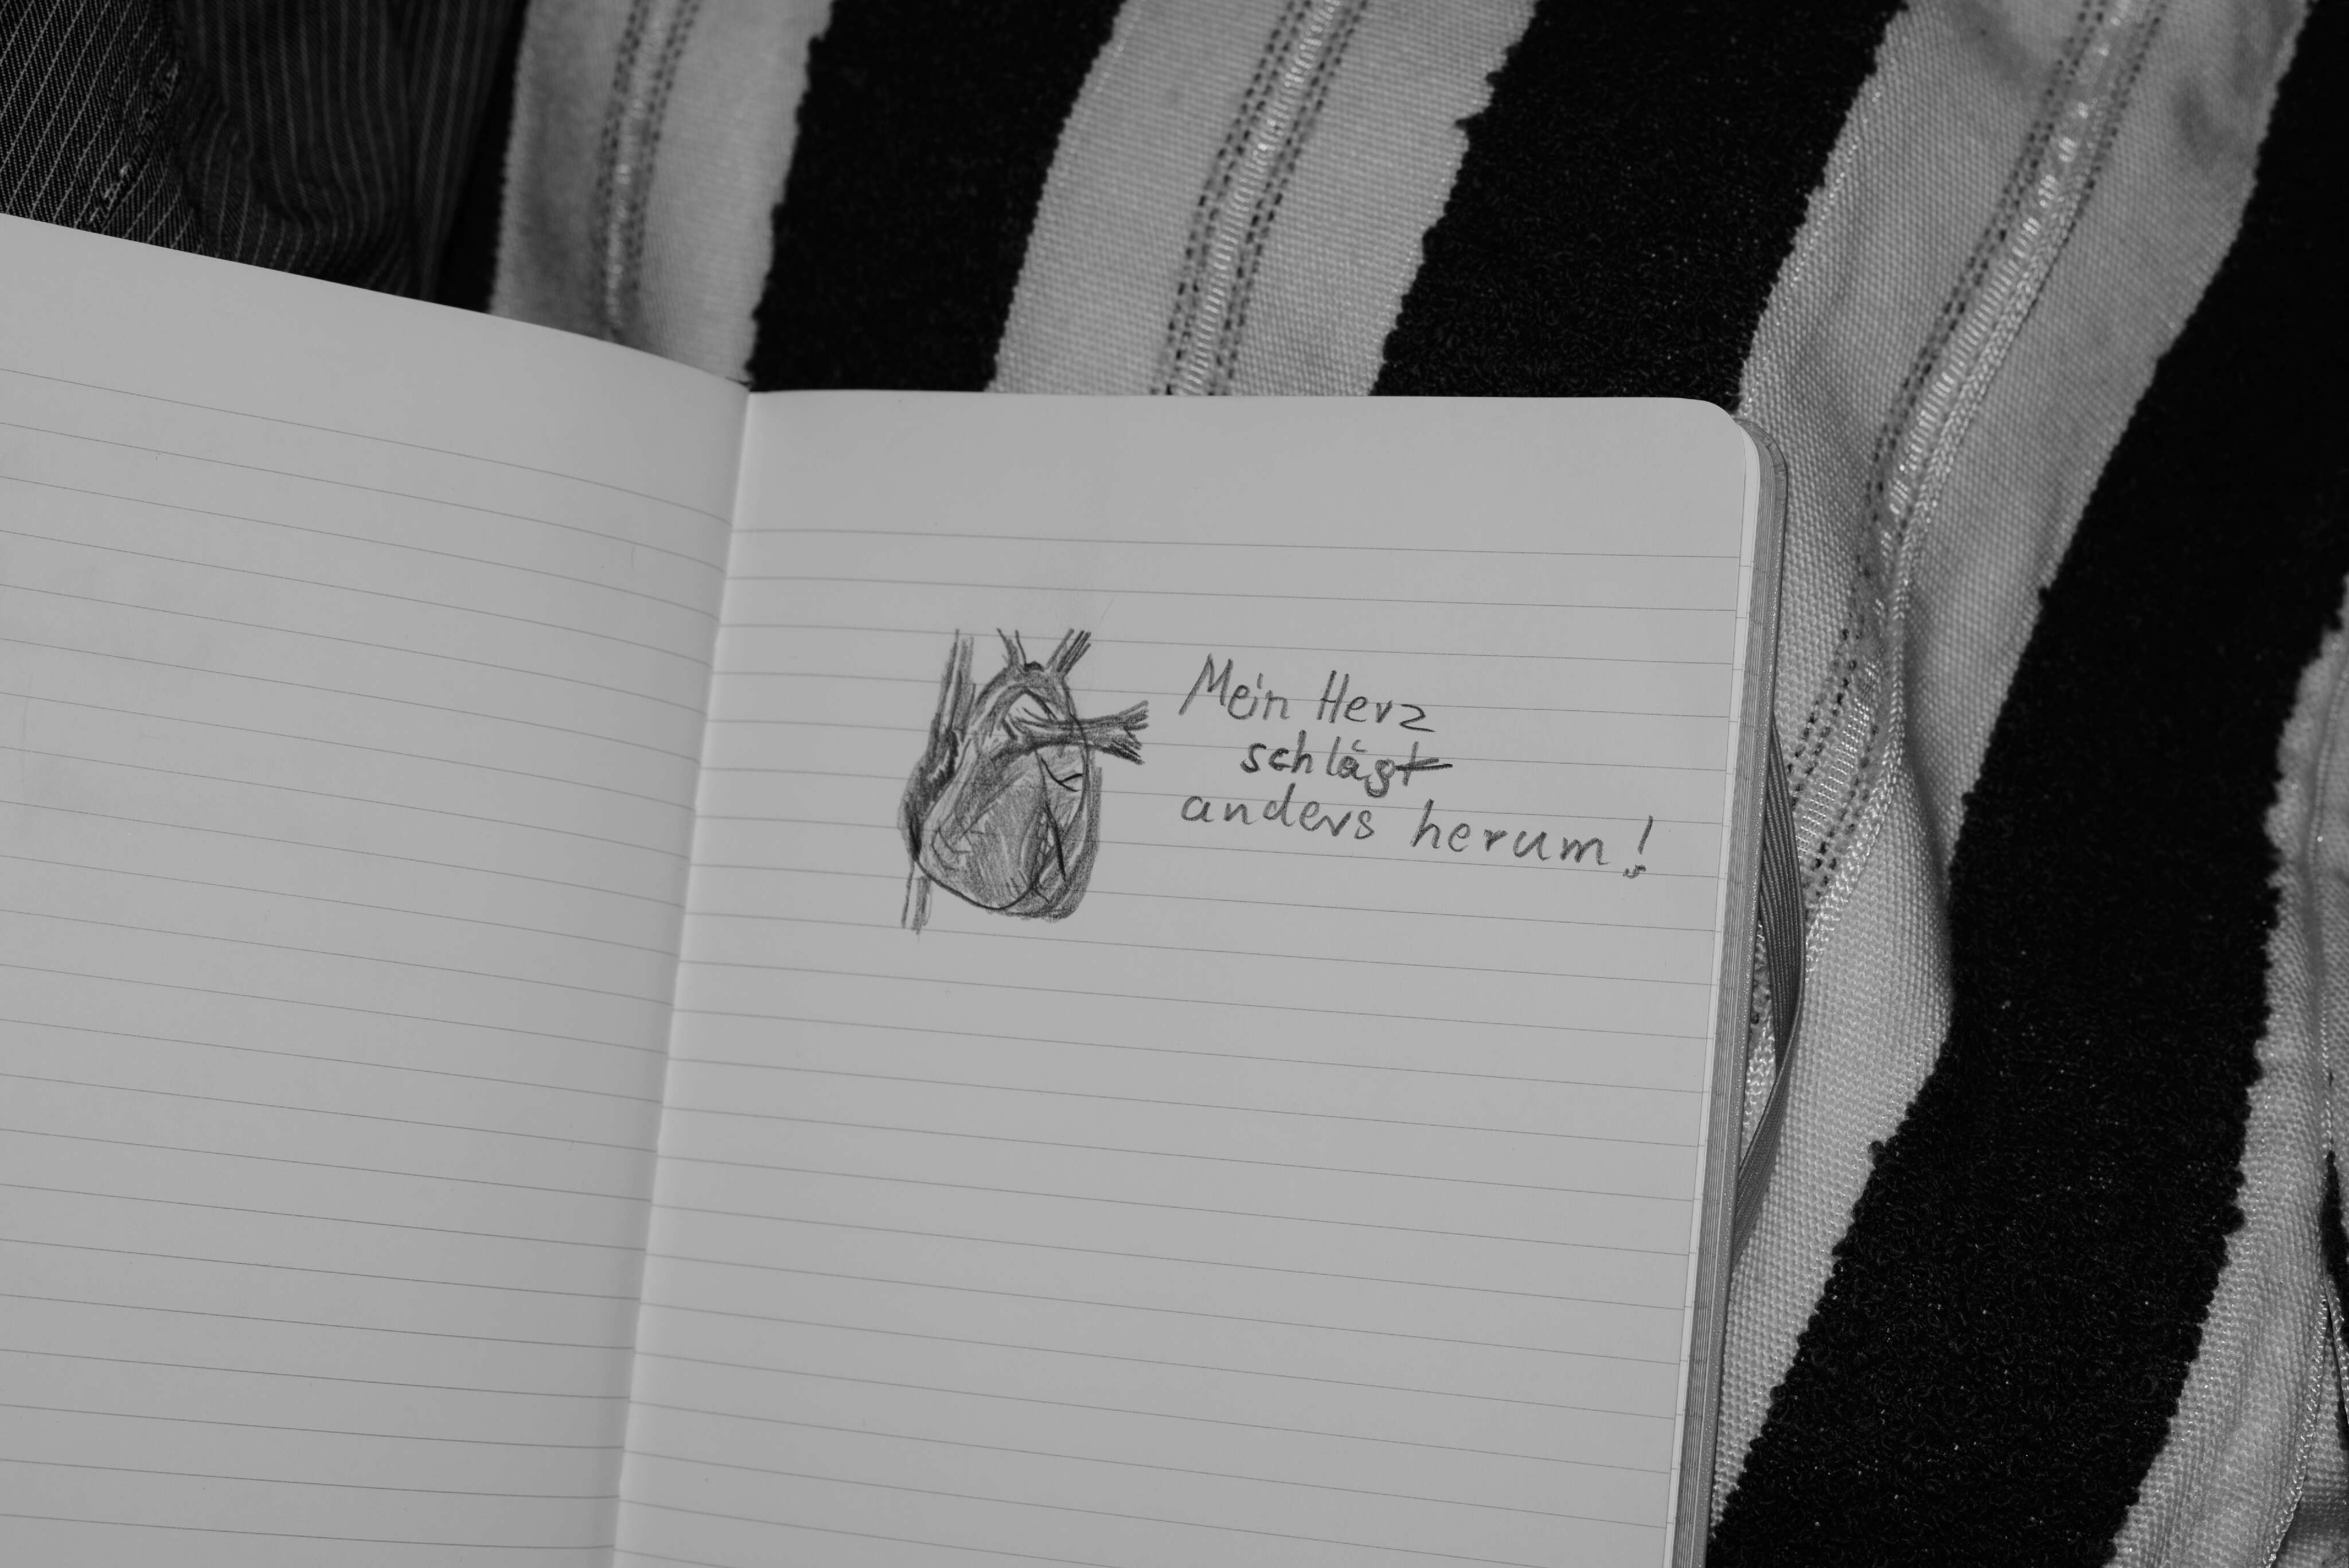 Mein Herz
schlägt
anders herum!